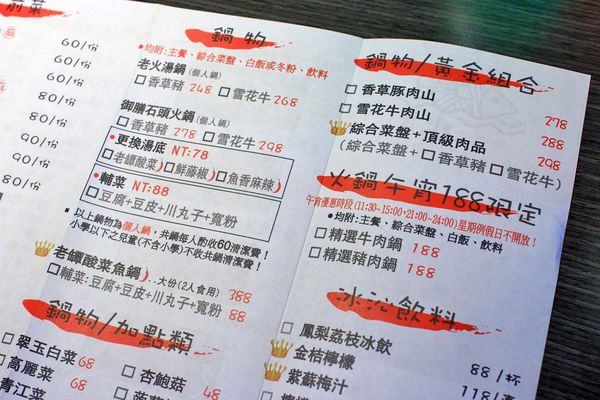 前菜
60/份
60/份
60/份
80/份
80/份
80/份
80/份
鍋物
•均附:主餐、綜合菜盤、白飯或冬粉、飲料
老火湯鍋(個人鍋)
□香草豬 248 □雪花牛 268
御膳石頭火鍋(個人鍋)
□香草豬 278 □雪花牛 298
•更換湯底 NT:78
□老罈酸菜 □鮮藤椒 □魚香麻辣
•輔菜 NT:88
□豆腐+豆皮+川丸子+寬粉
•以上鍋物為個人鍋,共鍋每人酌收60清潔費!
小學以下之兒童(不含小學)不收共鍋清潔費!
老罈酸菜魚鍋...大份(2人食用) 388
□輔菜:豆腐+豆皮+川丸子+寬粉 88
鍋物/加點類
□翠玉白菜 68
□高麗菜 68
青江菜
□杏鮑菇 48
鍋物/黃金組合
□香草豚肉山 278
□雪花牛肉山 288
綜合菜盤+頂級肉品 298
(綜合菜盤+□香草豬□雪花牛)
火鍋午宵188限定
午宵優惠時段(11:30-15:00,21:00-24:00)星期例假日不開放!
•均附:主餐、綜合菜盤、白飯、飲料
□精選牛肉鍋 188
□精選豬肉鍋 188
冰沁飲料
□鳳梨荔枝冰飲 88/杯
□金桔檸檬
□紫蘇梅汁 118/壺